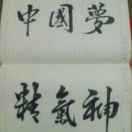 中國夢
精氣神